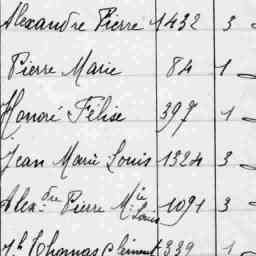 Alexandre Pierre 1432 3
Pierre Marie 84 1
Honoré Félise 397 1
Jean Marie Louis 1324 3
Alex.dre Pierre M.ie Louis 1091 3
Thomas Clément 339 1